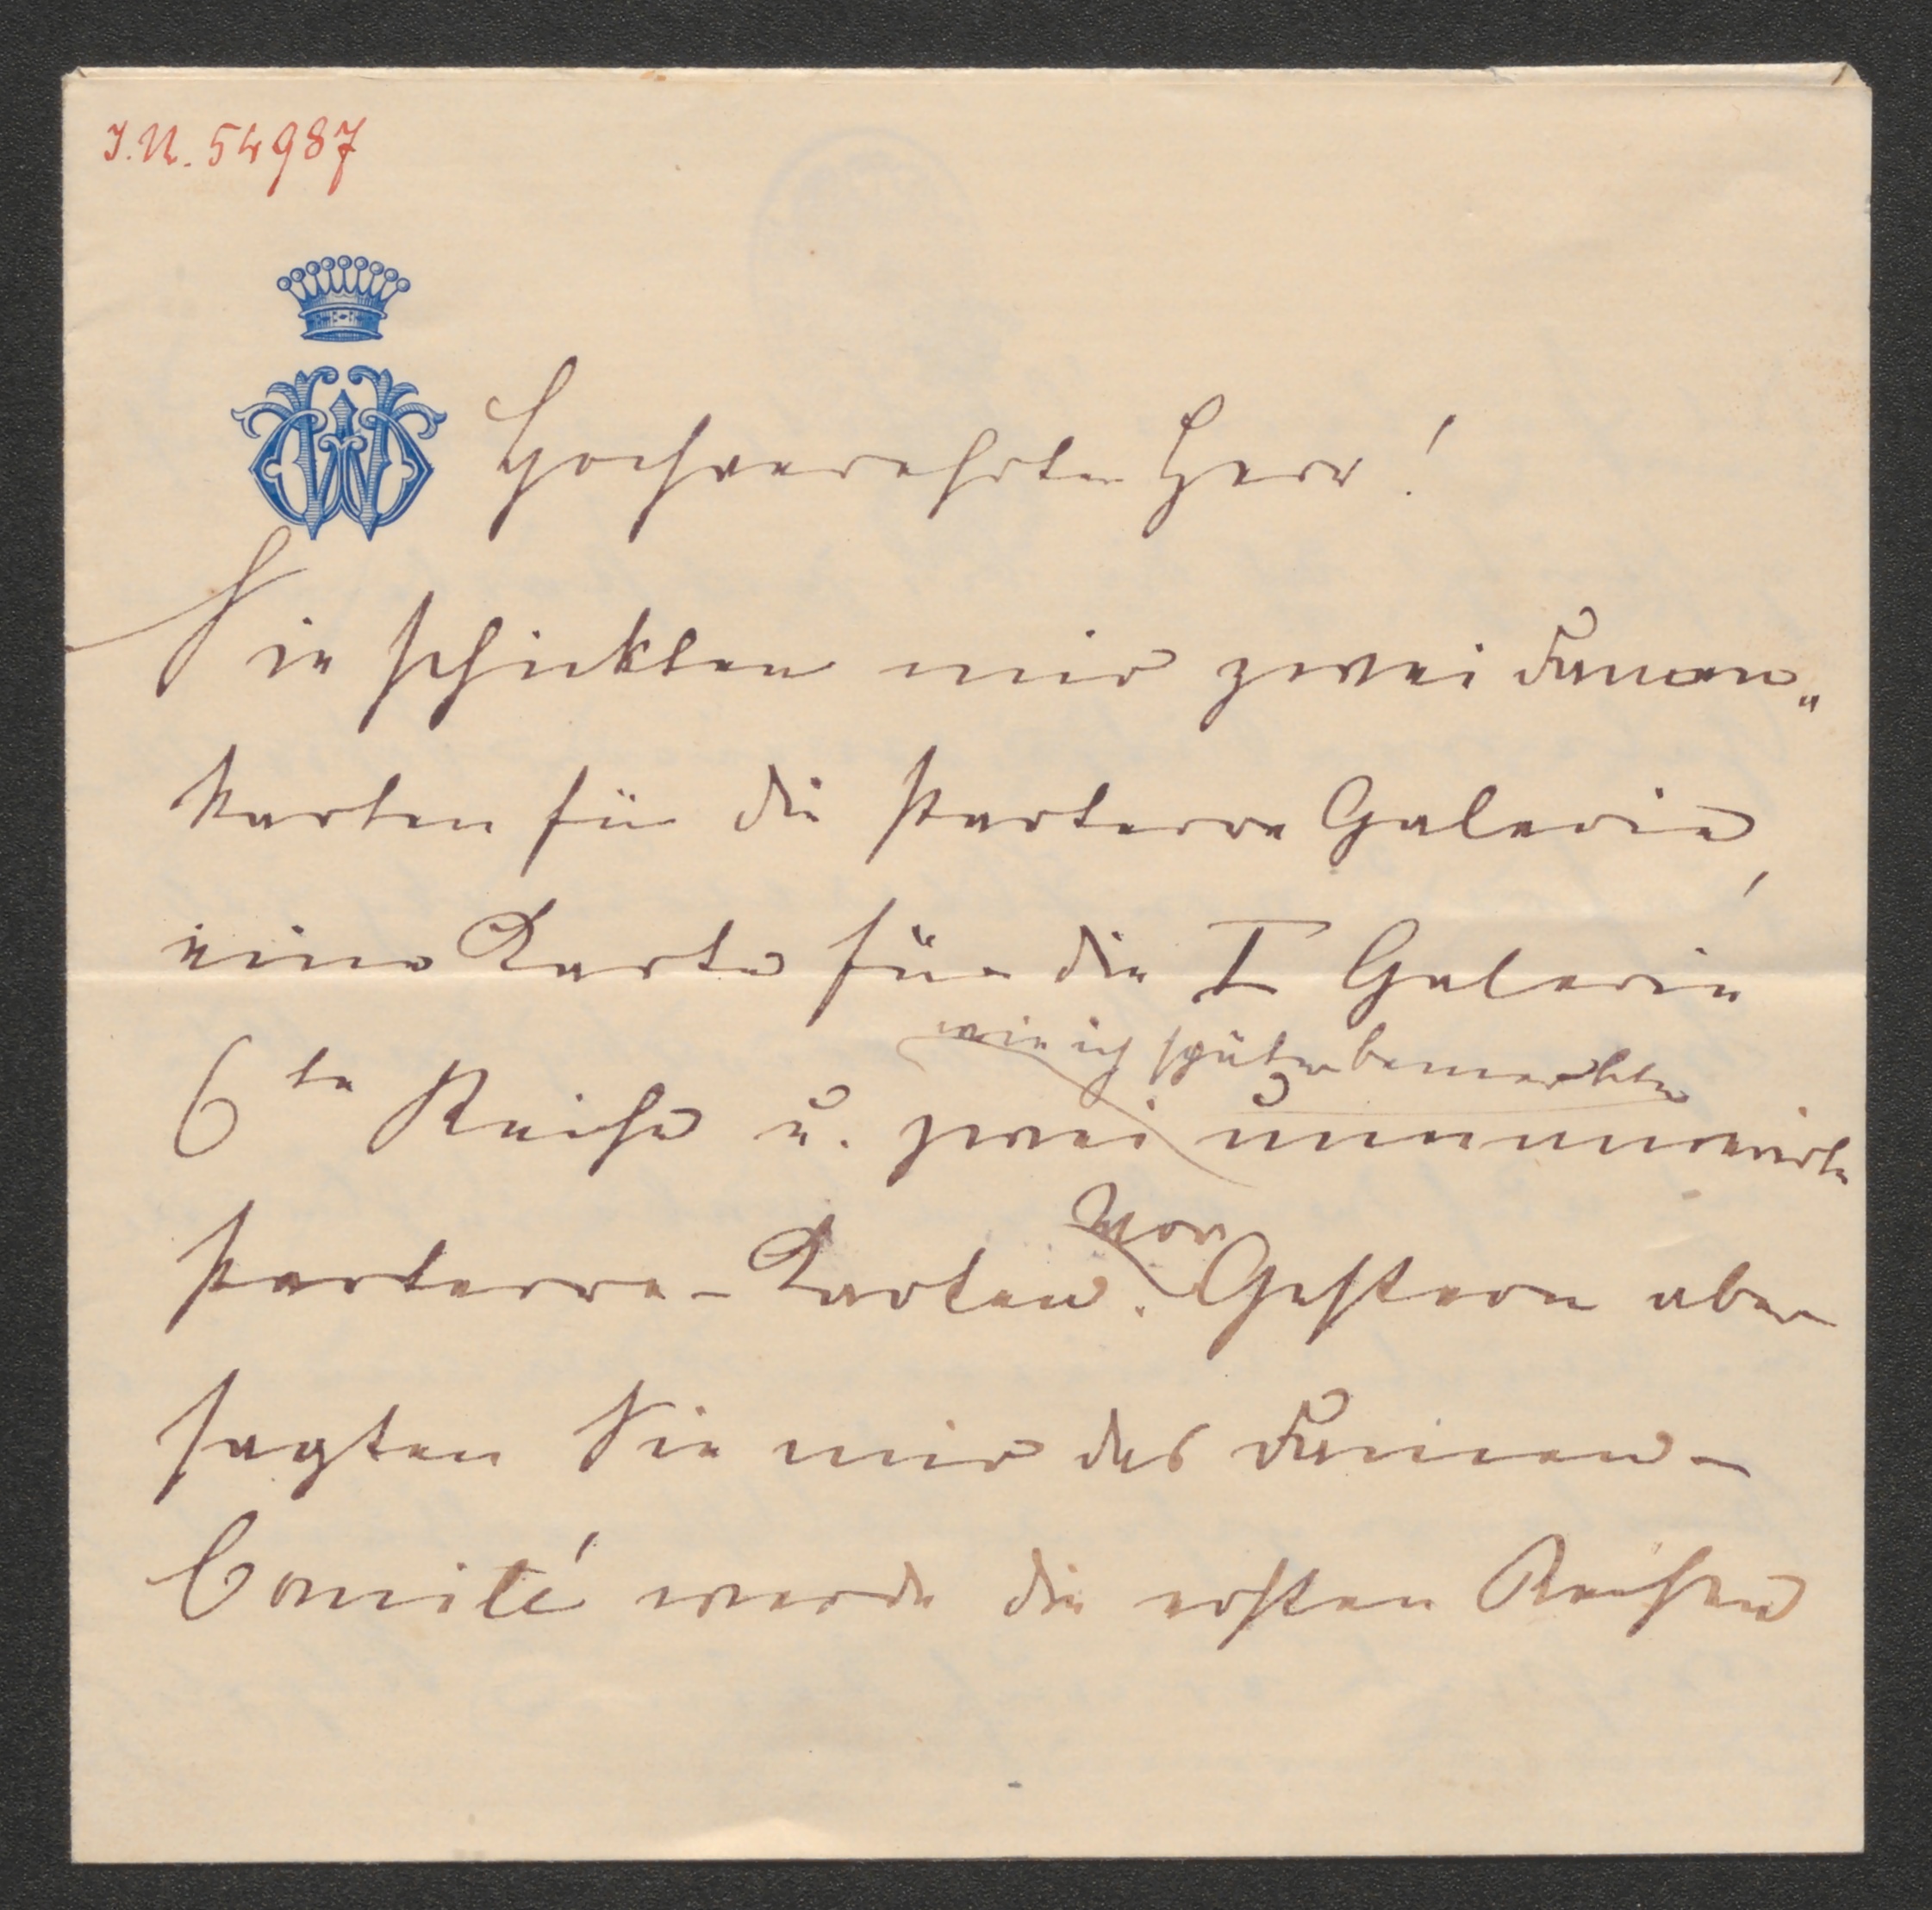 I.N. 54987
Hochverehrter Herr!
Sie schickten mir zwei Damen„
karten für die Parterre Galerie,
eine Karte für die I Galerie
wie ich später bemerkte
6te Reihe u. zwei unnumerirte
Parterre-Karten. Vor Gestern aber
sagten Sie mir das Damen-
Comité werde die ersten Reihen